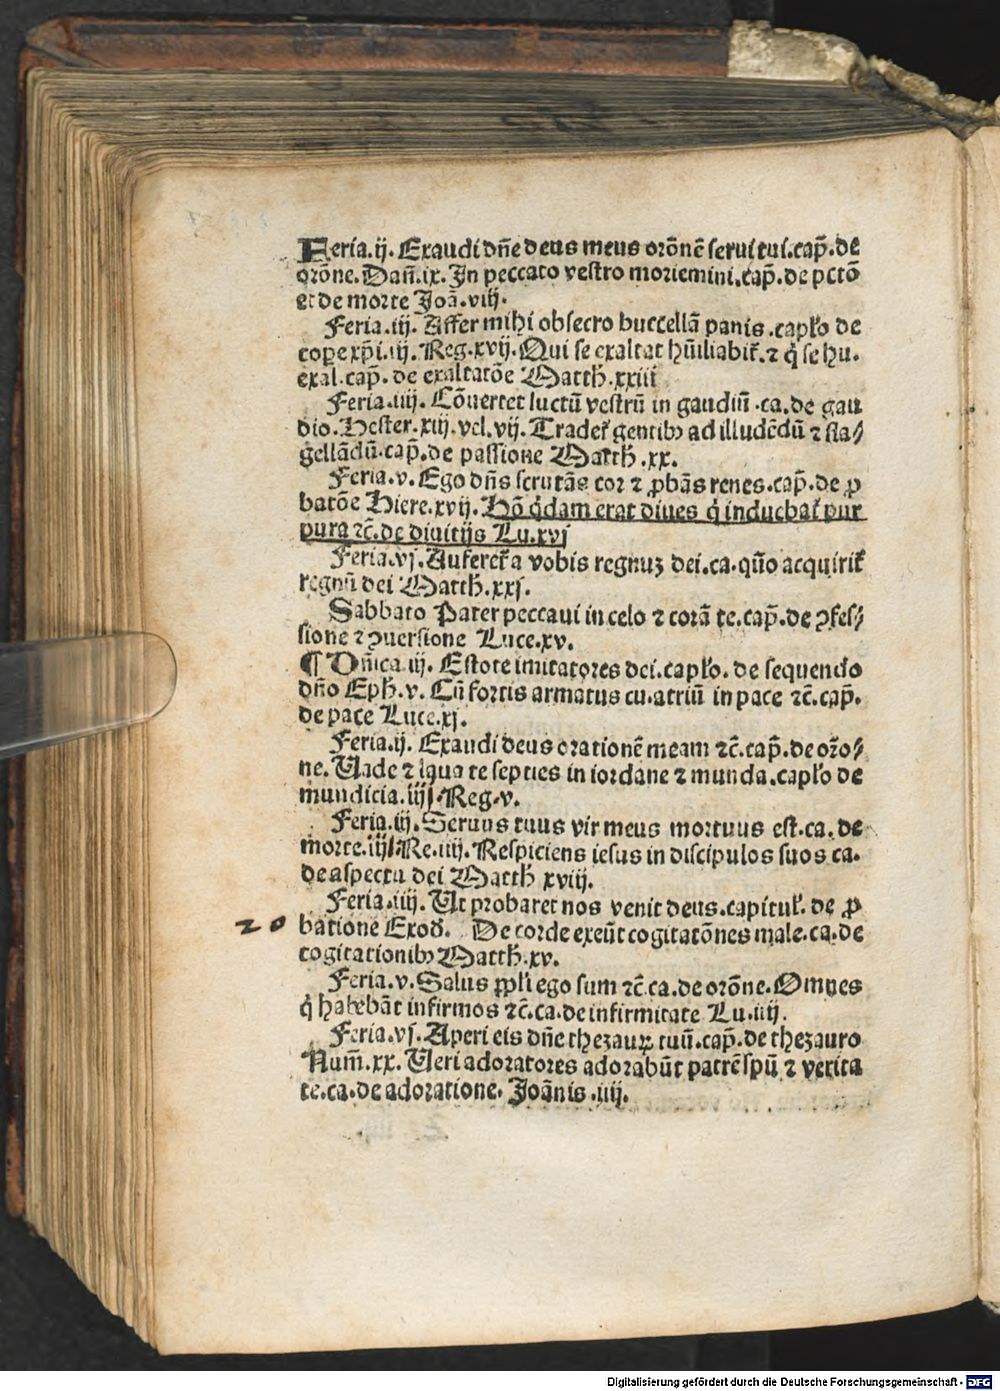 Feria.ij. Exaudi dn̄e deus meus orōnē serui tui.cap̄.de
orōne.Dan̄.ix. In peccato vestro moriemini.cap̄.de pctō
et de morte Joā.viij.
Feria.iij. Affer mihi obsecro buccellā panis .caplo de
xp̄i.iij.Reg.xvij.Qui se exaltat hūiliabit̄.⁊ q̇ se hu.
exal.cap̄. de exaltatōe Matth̄.xxiii
Feria.iiij. Cōuertet luctū vestrū in gaudiū .ca.de gau
dio.Hester.xiij.vel.vij. Tradet̄ gentibꝰ ad illudēdū ⁊ fla/
gellādū.cap̄.de passione Matth̄.xx.
Feria.v. Ego dn̄s scrutās cor ⁊ ꝓbās renes.cap̄.de ꝓ
batōe Hiere.xvij. Hō q̇dam erat diues q̇ induebat̄ pur
pura ⁊c̄.de diuitijs Lu.xvj
Feria.vj. Auferet̄ a vobis regnuʒ dei.ca.quō acquirit̄
regnū dei Matth̄.xxj.
Sabbato Pater peccaui in celo ⁊ corā te.cap̄.de ꝯfes/
sione ⁊ ꝯuersione Luce.xv.
¶ Dn̄ica iij. Estote imitatores dei.caplo. de sequendo
dn̄o Eph̄.v. Cū fortis armatus cu.atriū in pace ⁊c̄.cap̄.
de pace Luce.xj.
Feria.ij. Exaudi deus orationē meam ⁊c̄.cap̄.de orō/
ne. Vade ⁊ laua te septies in iordane ⁊ munda.caplo de
mundicia.iiij.Reg.v.
Feria.iij. Seruus tuus vir meus mortuus est.ca. de
morte.iiij.Re.iiij. Respiciens iesus in discipulos suos ca.
de aspectu dei Matth̄ xviij.
Feria.iiij. Ut probaret nos venit deus.capitul̄. de ꝓ
20 batione Exod̄. De corde exeūt cogitatōnes male.ca.de
cogitationibꝰ Matth̄.xv.
Feria.v. Salus ꝓpl̄i ego sum ⁊c̄.ca.de orōne. Omnes
q̇ habebāt infirmos ⁊c̄.ca.de infirmitate Lu.iiij.
Feria.vj. Aperi eis dn̄e thezauꝝ tuū.cap̄.de thezauro
Num̄.xx. Veri adoratores adorabūt patrē spū ⁊ verita
te.ca.de adoratione. Joānis .iiij.
Digitalisierung gefördert durch die Deutsche Forschungsgemeinschaft - DFG